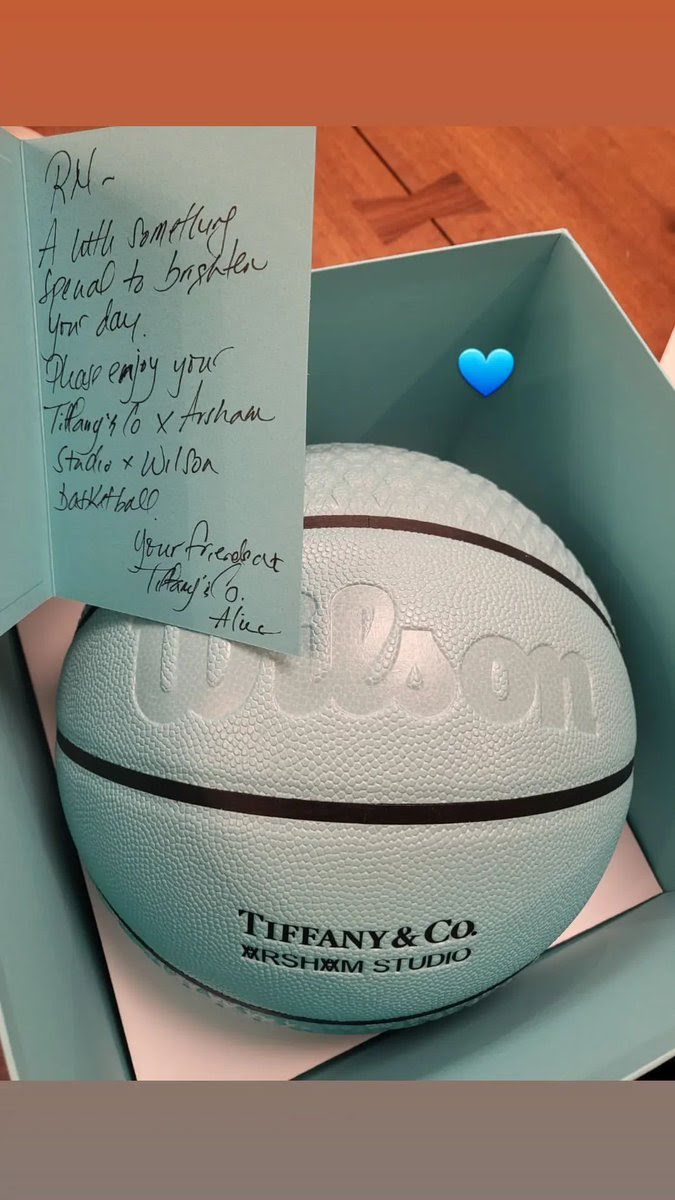 RM -
A little something
special to brighten
your day.
Please enjoy your
Tiffany's Co x Arsham
Studio x Wilson
basketball
Your friends at
Tiffany's Co.
Wilson
TIFFANY & CO.
ARSHAM STUDIO